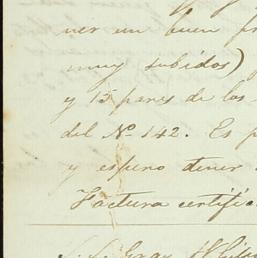 ner un buen
muy subidos)
y 15 pares de los
del Nº 142. Es
y espero tener
Factura